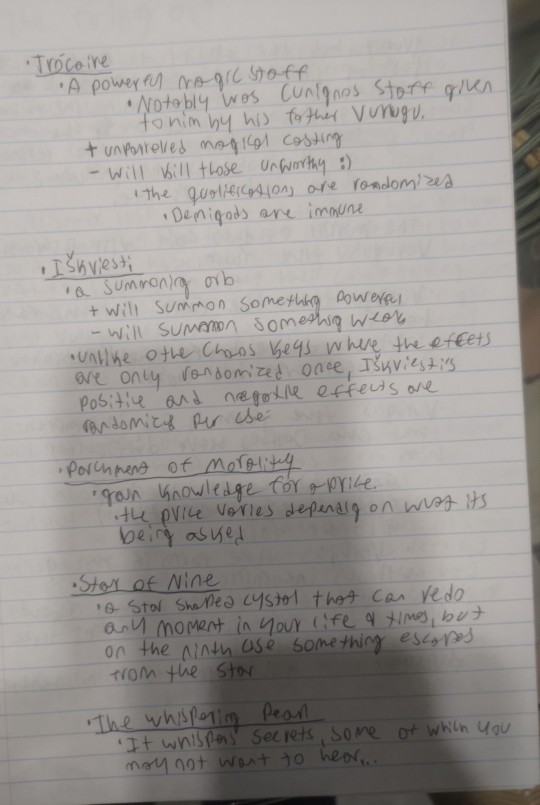 • Trócaire
• A powerful magic staff
• Notably was Cunignos staff given
to him by his father Vurugu.
+ unparreled magical casting
- will kill those unworthy :)
• the qualifications are randomized
• Demigods are immune
• Iškviesti
• a summoning orb
+ will summon something powerful
- will summon something weak
• unlike othe Chaos keys where the effects
are only randomized once, Iškviesti's
positive and negative effects are
randomized per use
• Parchment of Morality
• gain knowledge for a price.
• the price varies depending on what its
being asked
• Star of Nine
• a star shaped cystal that can redo
any moment in your life 9 times, but
on the ninth use something escapes
from the star
• The whispering Pearl
• It whispers secrets, some of which you
may not want to hear...